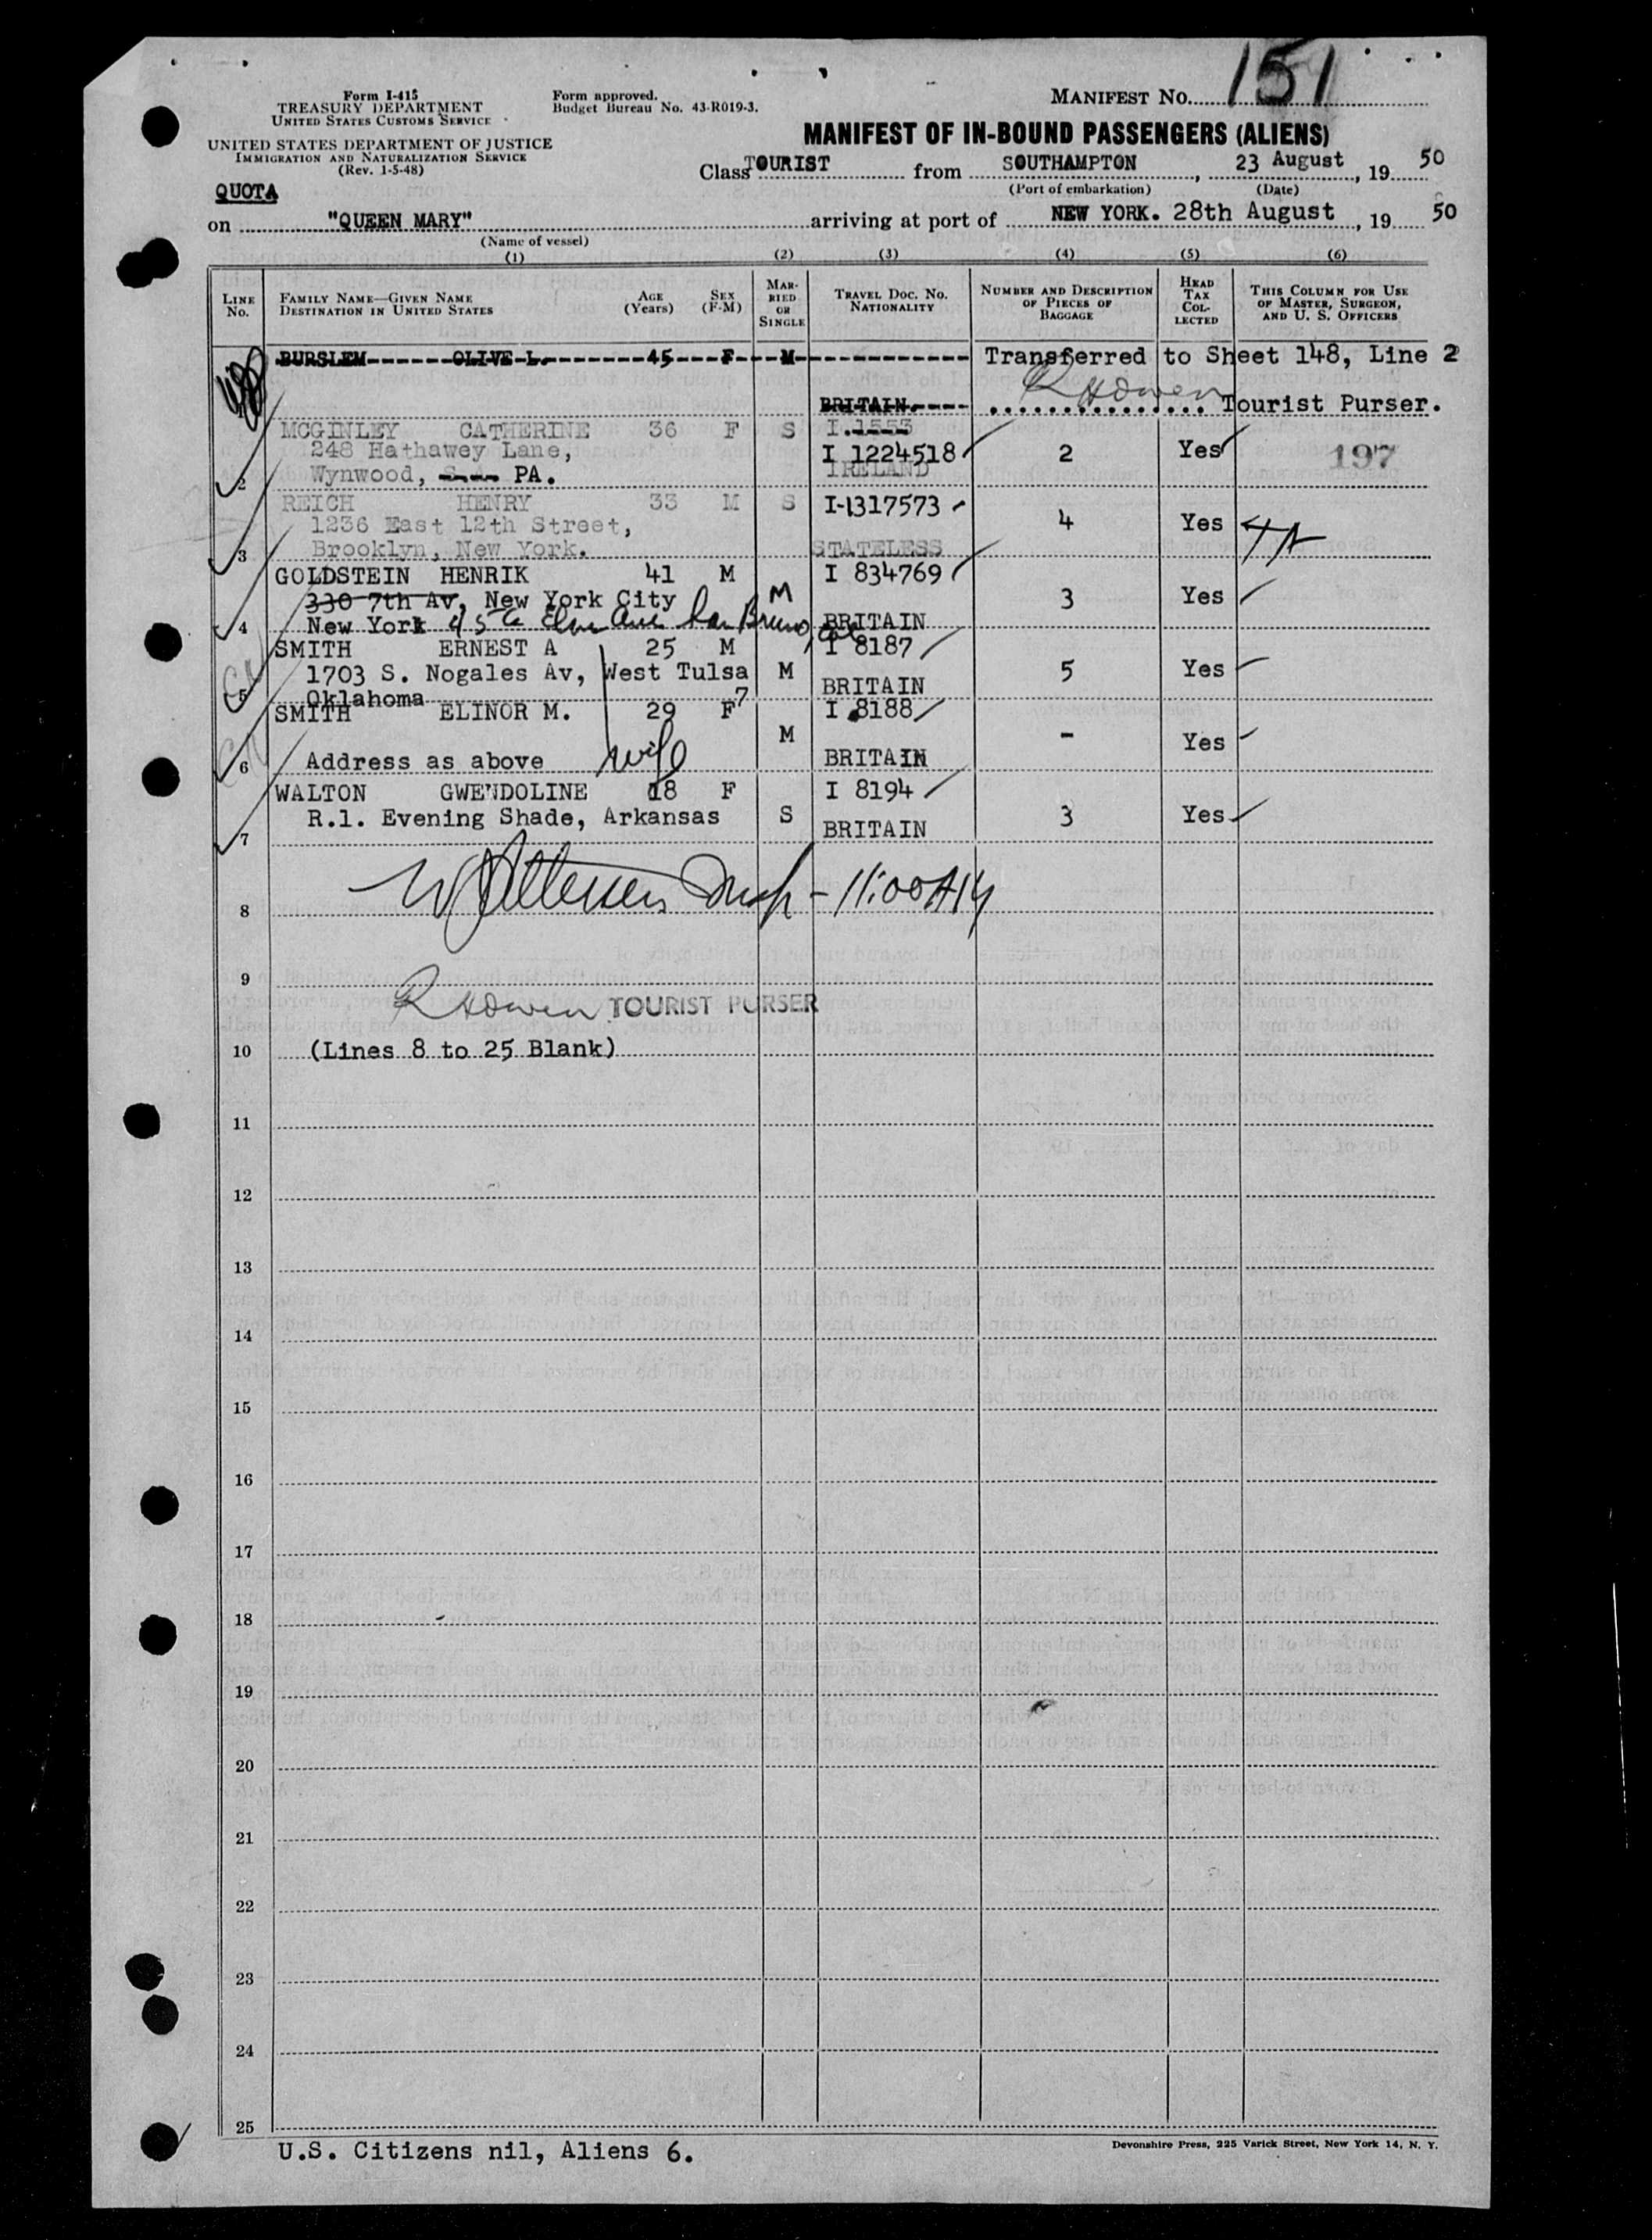 Form I-415
TREASURY DEPARTMENT
UNITED STATES CUSTOMS SERVICE
UNITED STATES DEPARTMENT OF JUSTICE
IMMIGRATION AND NATURALIZATION SERVICE
(Rev. 1-5-48)
Form approved.
Budget Bureau No. 43-R019-3.
MANIFEST No. 151
MANIFEST OF IN-BOUND PASSENGERS (ALIENS)
Class TOURIST from SOUTHAMPTON, 23 August, 19 50
(Port of embarkation) (Date)
QUOTA
on "QUEEN MARY" arriving at port of NEW YORK. 28th August, 19 50
(Name of vessel)
(1) (2) (3) (4) (5) (6)
LINE No. FAMILY NAME—GIVEN NAME DESTINATION IN UNITED STATES AGE (Years) SEX (F-M) MARRIED OR SINGLE TRAVEL DOC. No. NATIONALITY NUMBER AND DESCRIPTION OF PIECES OF BAGGAGE HEAD TAX COLLECTED THIS COLUMN FOR USE OF MASTER, SURGEON, AND U. S. OFFICERS
BURSLEM OLIVE L. 45 F M Transferred to Sheet 148, Line 2
BRITAIN. R H Owen Tourist Purser.
MCGINLEY CATHERINE 36 F S I.1553
248 Hathawey Lane, I 1224518 2 Yes 197
2 Wynwood, PA. IRELAND
REICH HENRY 33 M S I-1317573
1236 East 12th Street, 4 Yes
3 Brooklyn, New York. STATELESS
GOLDSTEIN HENRIK 41 M I 834769
330 7th Av, New York City M 3 Yes
4 New York Elm Ave San Bruno, Cal BRITAIN
SMITH ERNEST A 25 M I 8187
1703 S. Nogales Av, West Tulsa M 5 Yes
5 Oklahoma 7 BRITAIN
SMITH ELINOR M. 29 F I 8188
M - Yes
6 Address as above wife BRITAIN
WALTON GWENDOLINE 18 F I 8194
R.1. Evening Shade, Arkansas S 3 Yes
7 BRITAIN
8 Insp - 11:00 AM
9
R H Owen TOURIST PURSER
10 (Lines 8 to 25 Blank)
11
12
13
14
15
16
17
18
19
20
21
22
23
24
25
U.S. Citizens nil, Aliens 6.
Devonshire Press, 225 Varick Street, New York 14, N. Y.